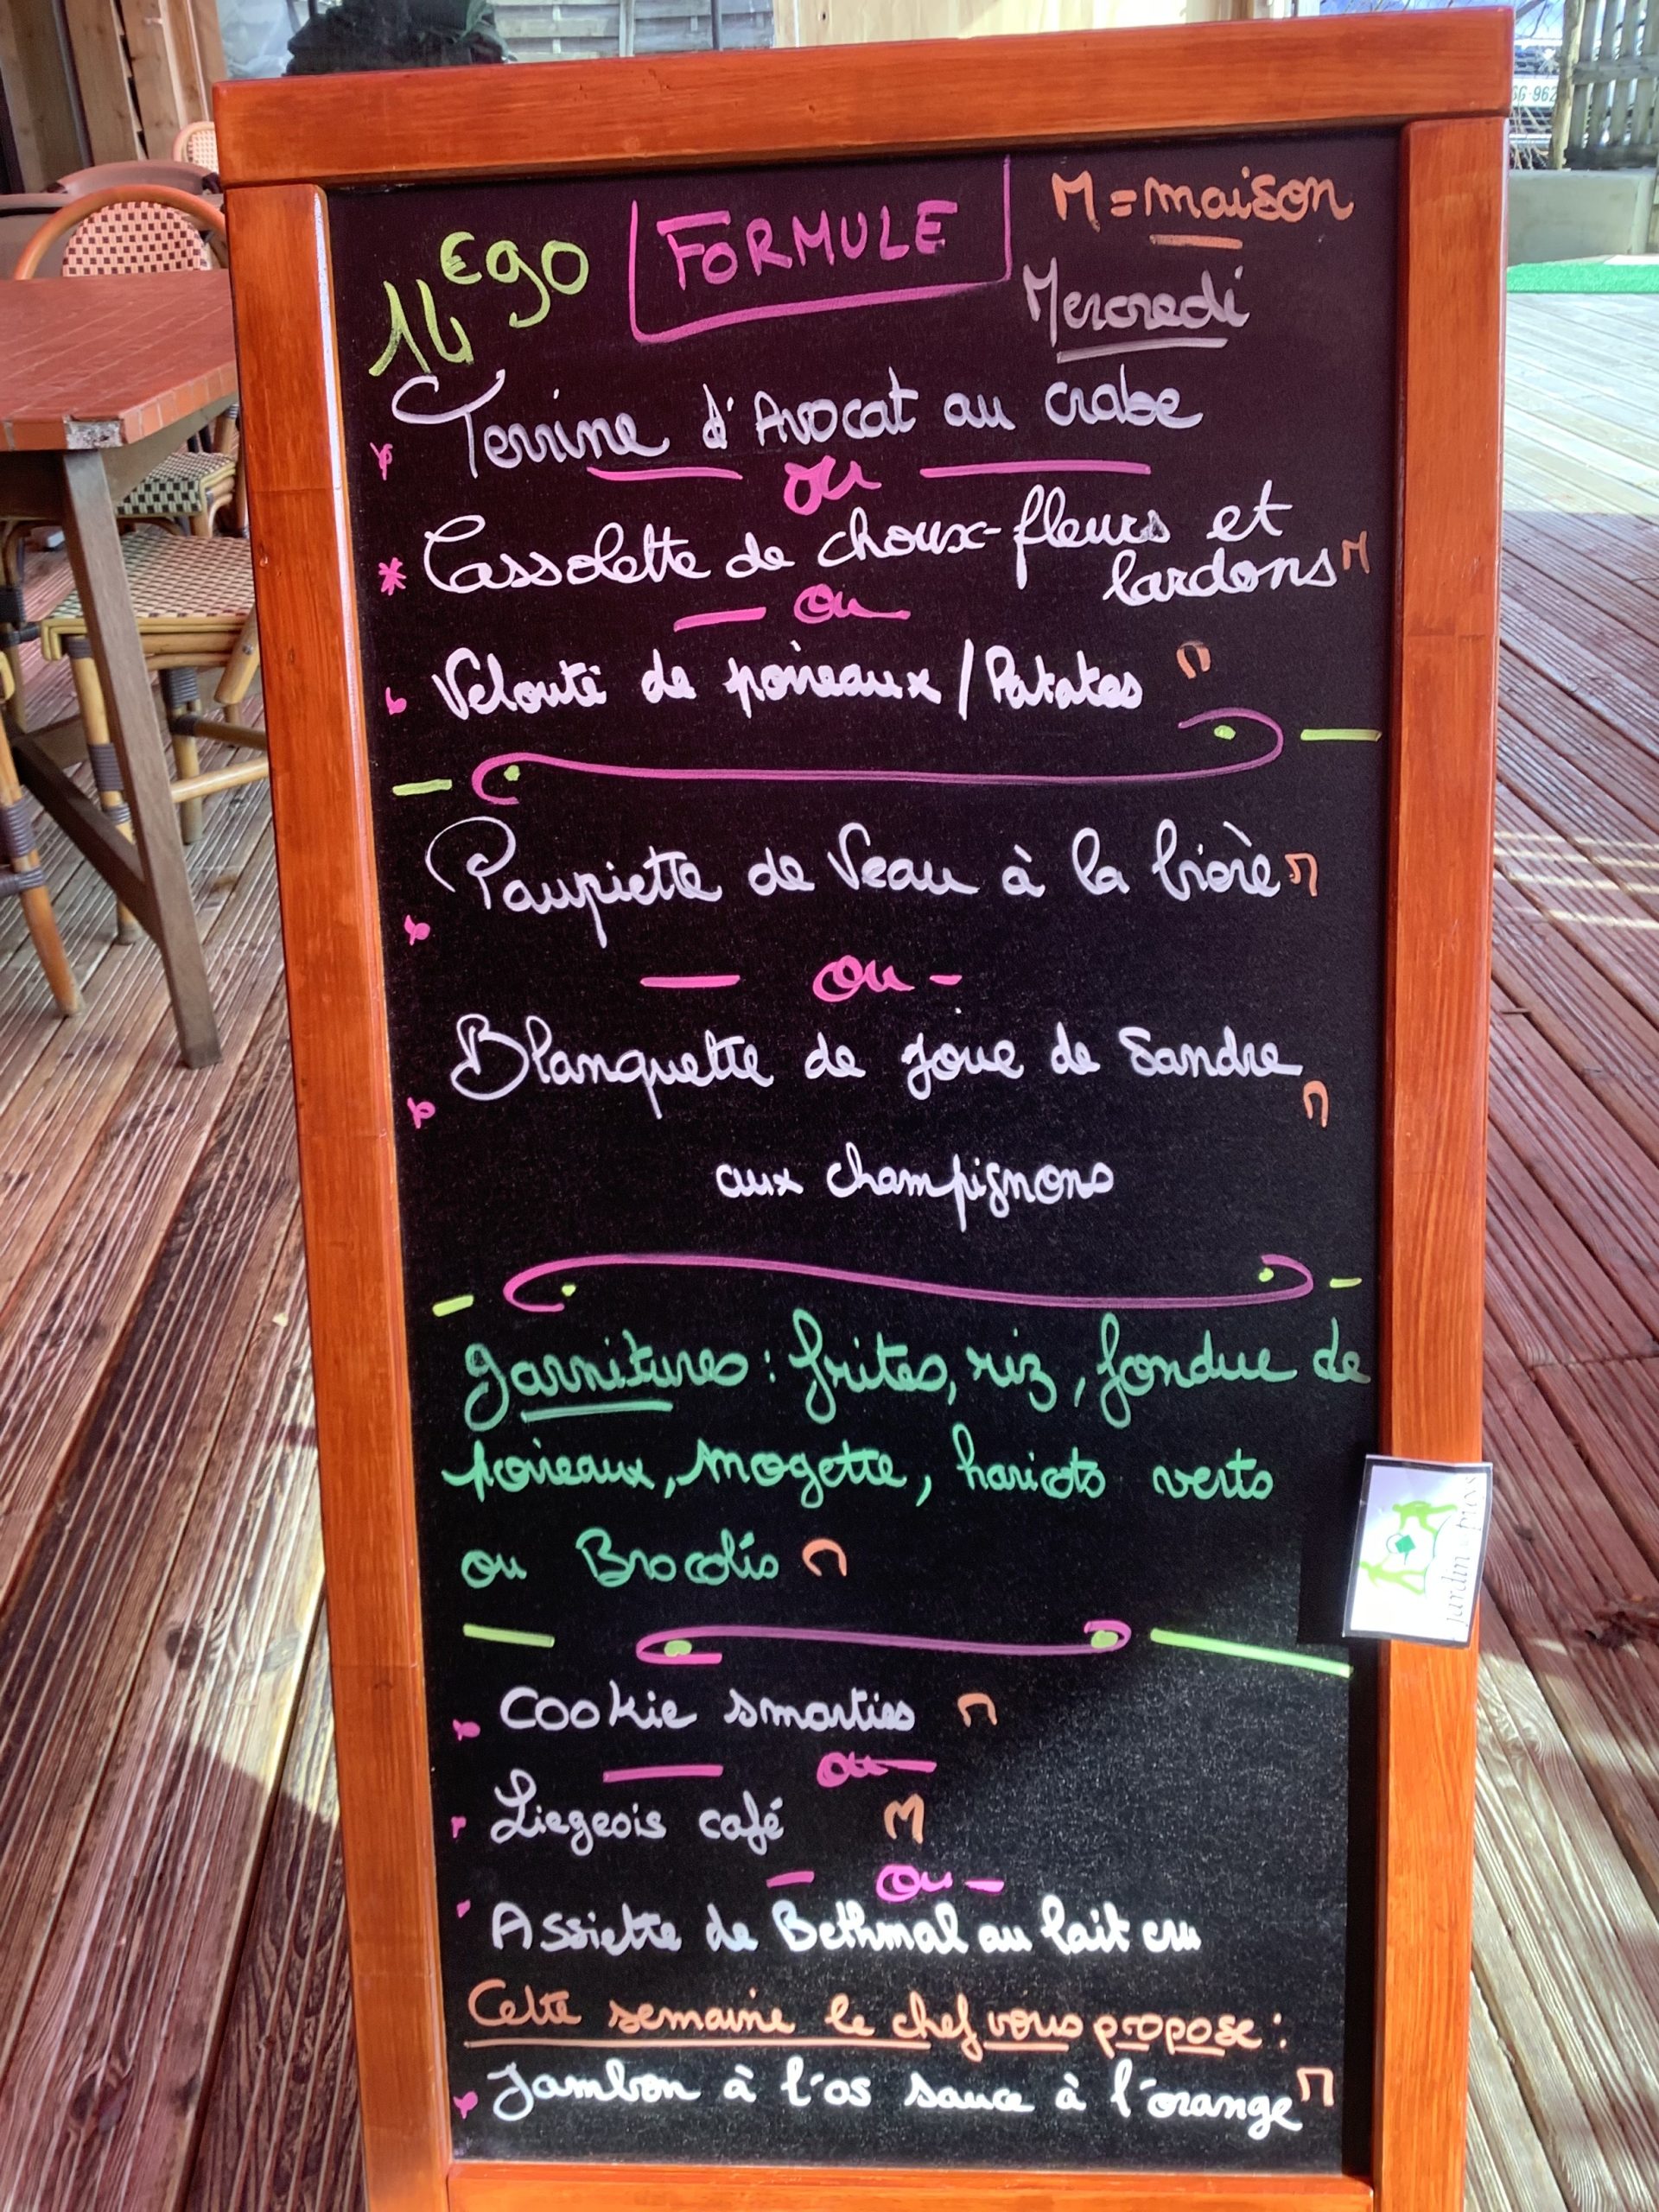 14€90 FORMULE M = maison
Mercredi
Terrine d'Avocat au crabe
ou
* Cassolette de choux-fleurs et
lardons M
ou
Velouté de poireaux / Patates M
Paupiette de Veau à la bière M
ou
Blanquette de joue de Sandre M
aux champignons
Garnitures : frites, riz, fondue de
poireaux, mogette, haricots verts
ou Brocolis M
Cookie smarties M
ou
Liegeois café M
ou
Assiette de Bethmal au lait cru
Cette semaine le chef vous propose :
Jambon à l'os sauce à l'orange M
jardin